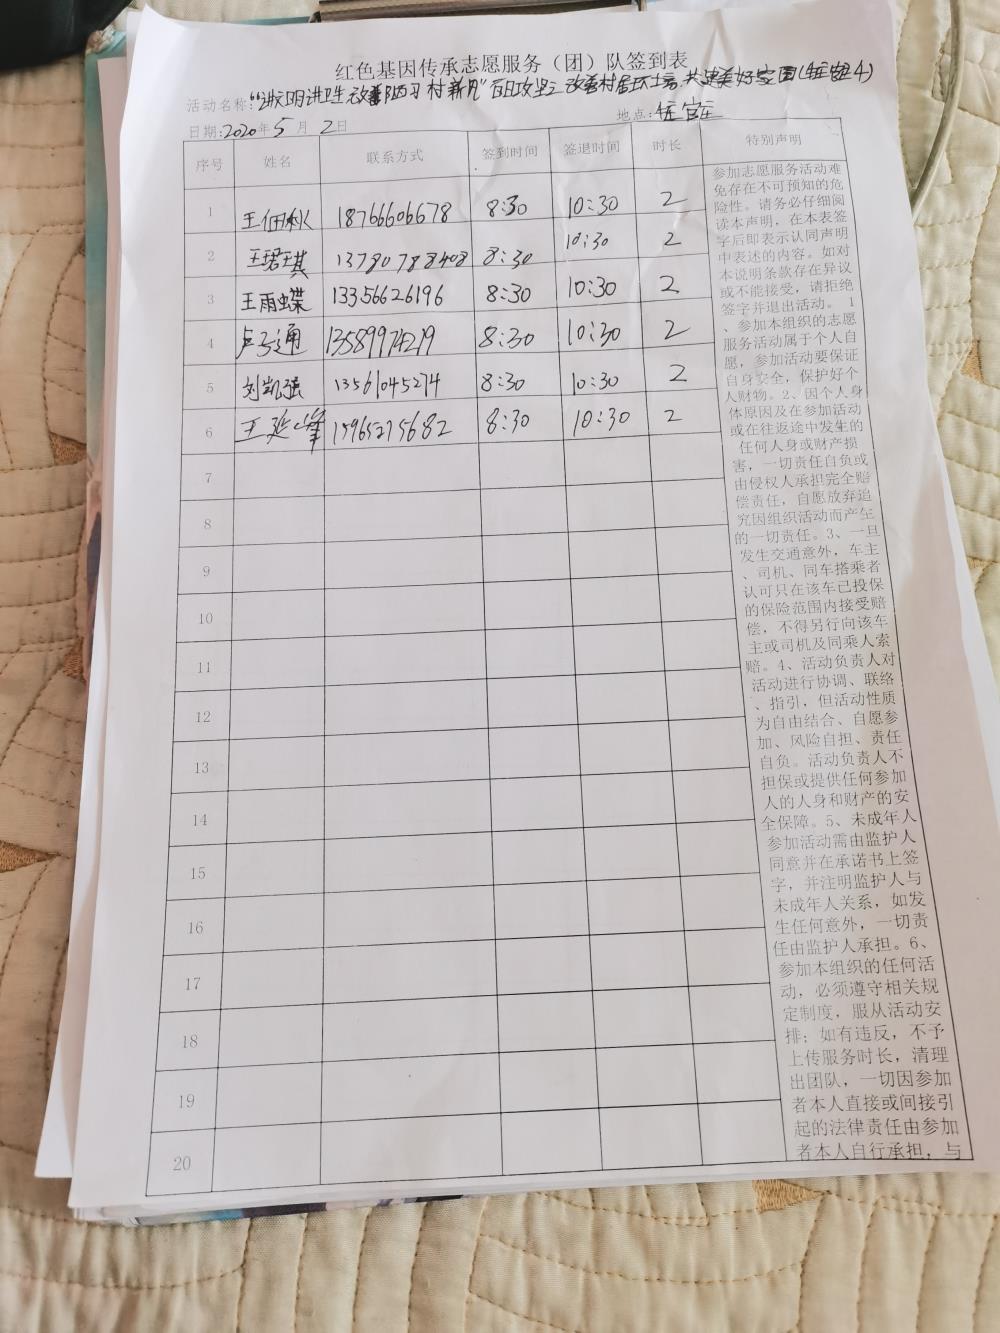 红色基因传承志愿服务（团）队签到表
活动名称:"淑明讲卫生 改善陋习 树新风"百日攻坚 改善村居环境 共建美好家园(
日期:2020年5月2日 地点:
序号 姓名 联系方式 签到时间 签退时间 时长 特别声明
1 王佃秋 18766606678 8:30 10:30 2
2 王珺琪 13780788408 8:30 10:30 2
3 王雨蝶 13356626196 8:30 10:30 2
4 卢子通 13589974219 8:30 10:30 2
5 刘凯强 13561045274 8:30 10:30 2
6 王延峰 15965275682 8:30 10:30 2
7
8
9
10
11
12
13
14
15
16
17
18
19
20
参加志愿服务活动难
免存在不可预知的危
险性。请务必仔细阅
读本声明，在本表签
字后即表示认同声明
中表述的内容。如对
本说明条款存在异议
或不能接受，请拒绝
签字并退出活动。 1
、参加本组织的志愿
服务活动属于个人自
愿，参加活动要保证
自身安全，保护好个
人财物。2、因个人身
体原因及在参加活动
或在往返途中发生的
任何人身或财产损
害，一切责任自负或
由侵权人承担完全赔
偿责任，自愿放弃追
究因组织活动而产生
的一切责任。3、一旦
发生交通意外，车主
、司机、同车搭乘者
认可只在该车已投保
的保险范围内接受赔
偿，不得另行向该车
主或司机及同乘人索
赔。4、活动负责人对
活动进行协调、联络
、指引，但活动性质
为自由结合、自愿参
加、风险自担、责任
自负。活动负责人不
担保或提供任何参加
人的人身和财产的安
全保障。5、未成年人
参加活动需由监护人
同意并在承诺书上签
字，并注明监护人与
未成年人关系，如发
生任何意外，一切责
任由监护人承担。6、
参加本组织的任何活
动，必须遵守相关规
定制度，服从活动安
排；如有违反，不予
上传服务时长，清理
出团队，一切因参加
者本人直接或间接引
起的法律责任由参加
者本人自行承担，与